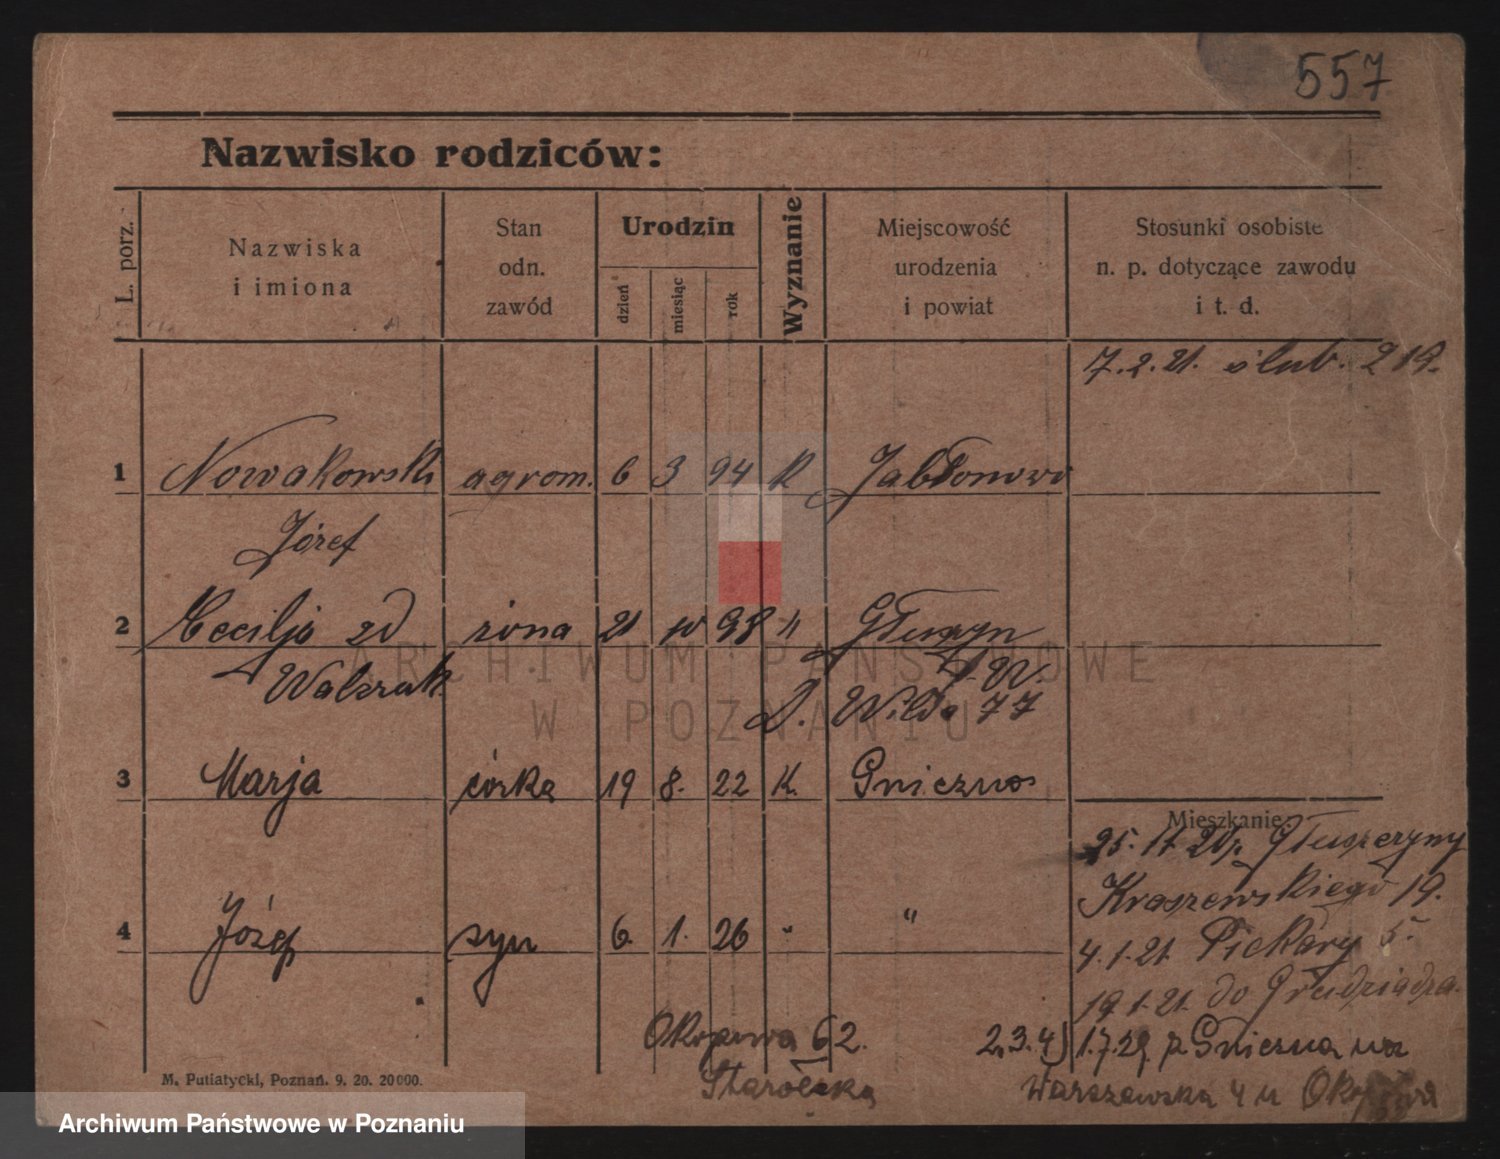 557
Nazwisko rodziców:
L. porz.
Nazwiska
i imiona
Stan
odn.
zawód
Urodzin
dzień
miesiąc
rok
Wyznanie
Miejscowość
urodzenia
i powiat
Stosunki osobiste
n. p. dotyczące zawodu
i t. d.
7.2.21. ślub. 219.
1 Nowakowski agrom. 6 3 94 K Jabłonowo
Józef
2 Cecilja zd żona 21 10 98 " Głuszyn
Walczak p. W.
D. Wilda 77
3 Marja córka 19 8. 22 K. Gniezno
Mieszkanie:
25. 11. 20 p. Głuszyny
Kraszewskiego 19.
4 Józef syn 6. 1. 26 " "
4.1.21. Piekary 5.
19.1.21. do Grudziądza.
Okopowa 62. 2.3.4) 1.7.29. z Gniezna na
Starołęka Warszawska 4 u
M. Putiatycki, Poznań. 9. 20. 20000.
ARCHIWUM PAŃSTWOWE
W POZNANIU
Archiwum Państwowe w Poznaniu